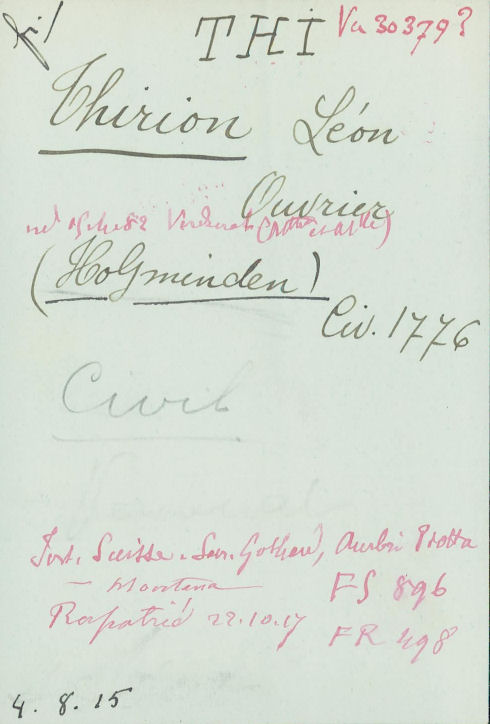 THI Va 30379
Thirion Léon
Ouvrier
né
(Holzminden)
Civ. 1776
Civil
Int. Suisse. San. Gothard, Ambri Piotta
— Montana
FS 896
Rapatrié 22.10.17
FR 498
4. 8. 15